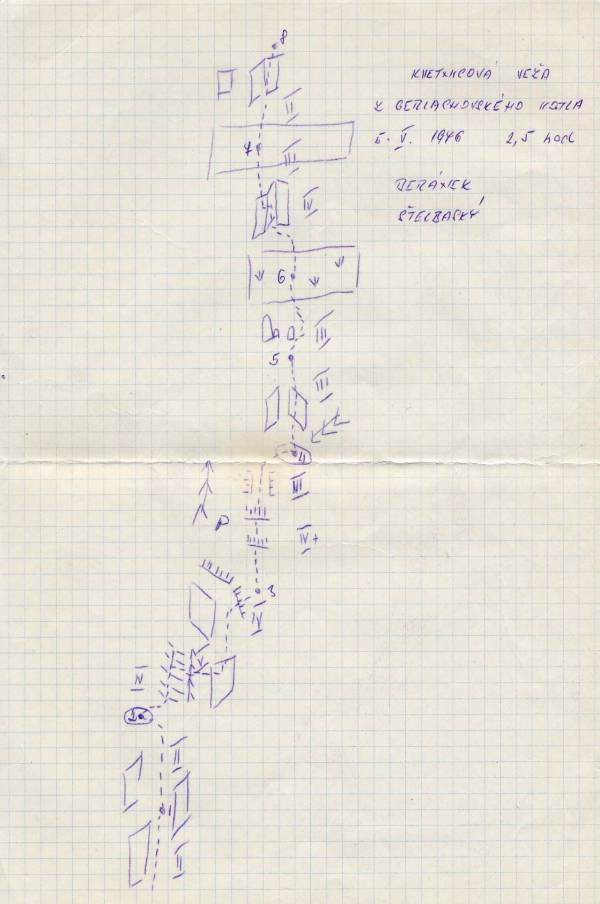 KVETNICOVÁ VEŽA
Z GERLACHOVSKÉHO KOTLA
5. V. 1976 2,5 hod
BERÁNEK
8
III
7
III
IV
6
III
5
III
4
III
P
IV+
3
IV
IV
2
III
1
III